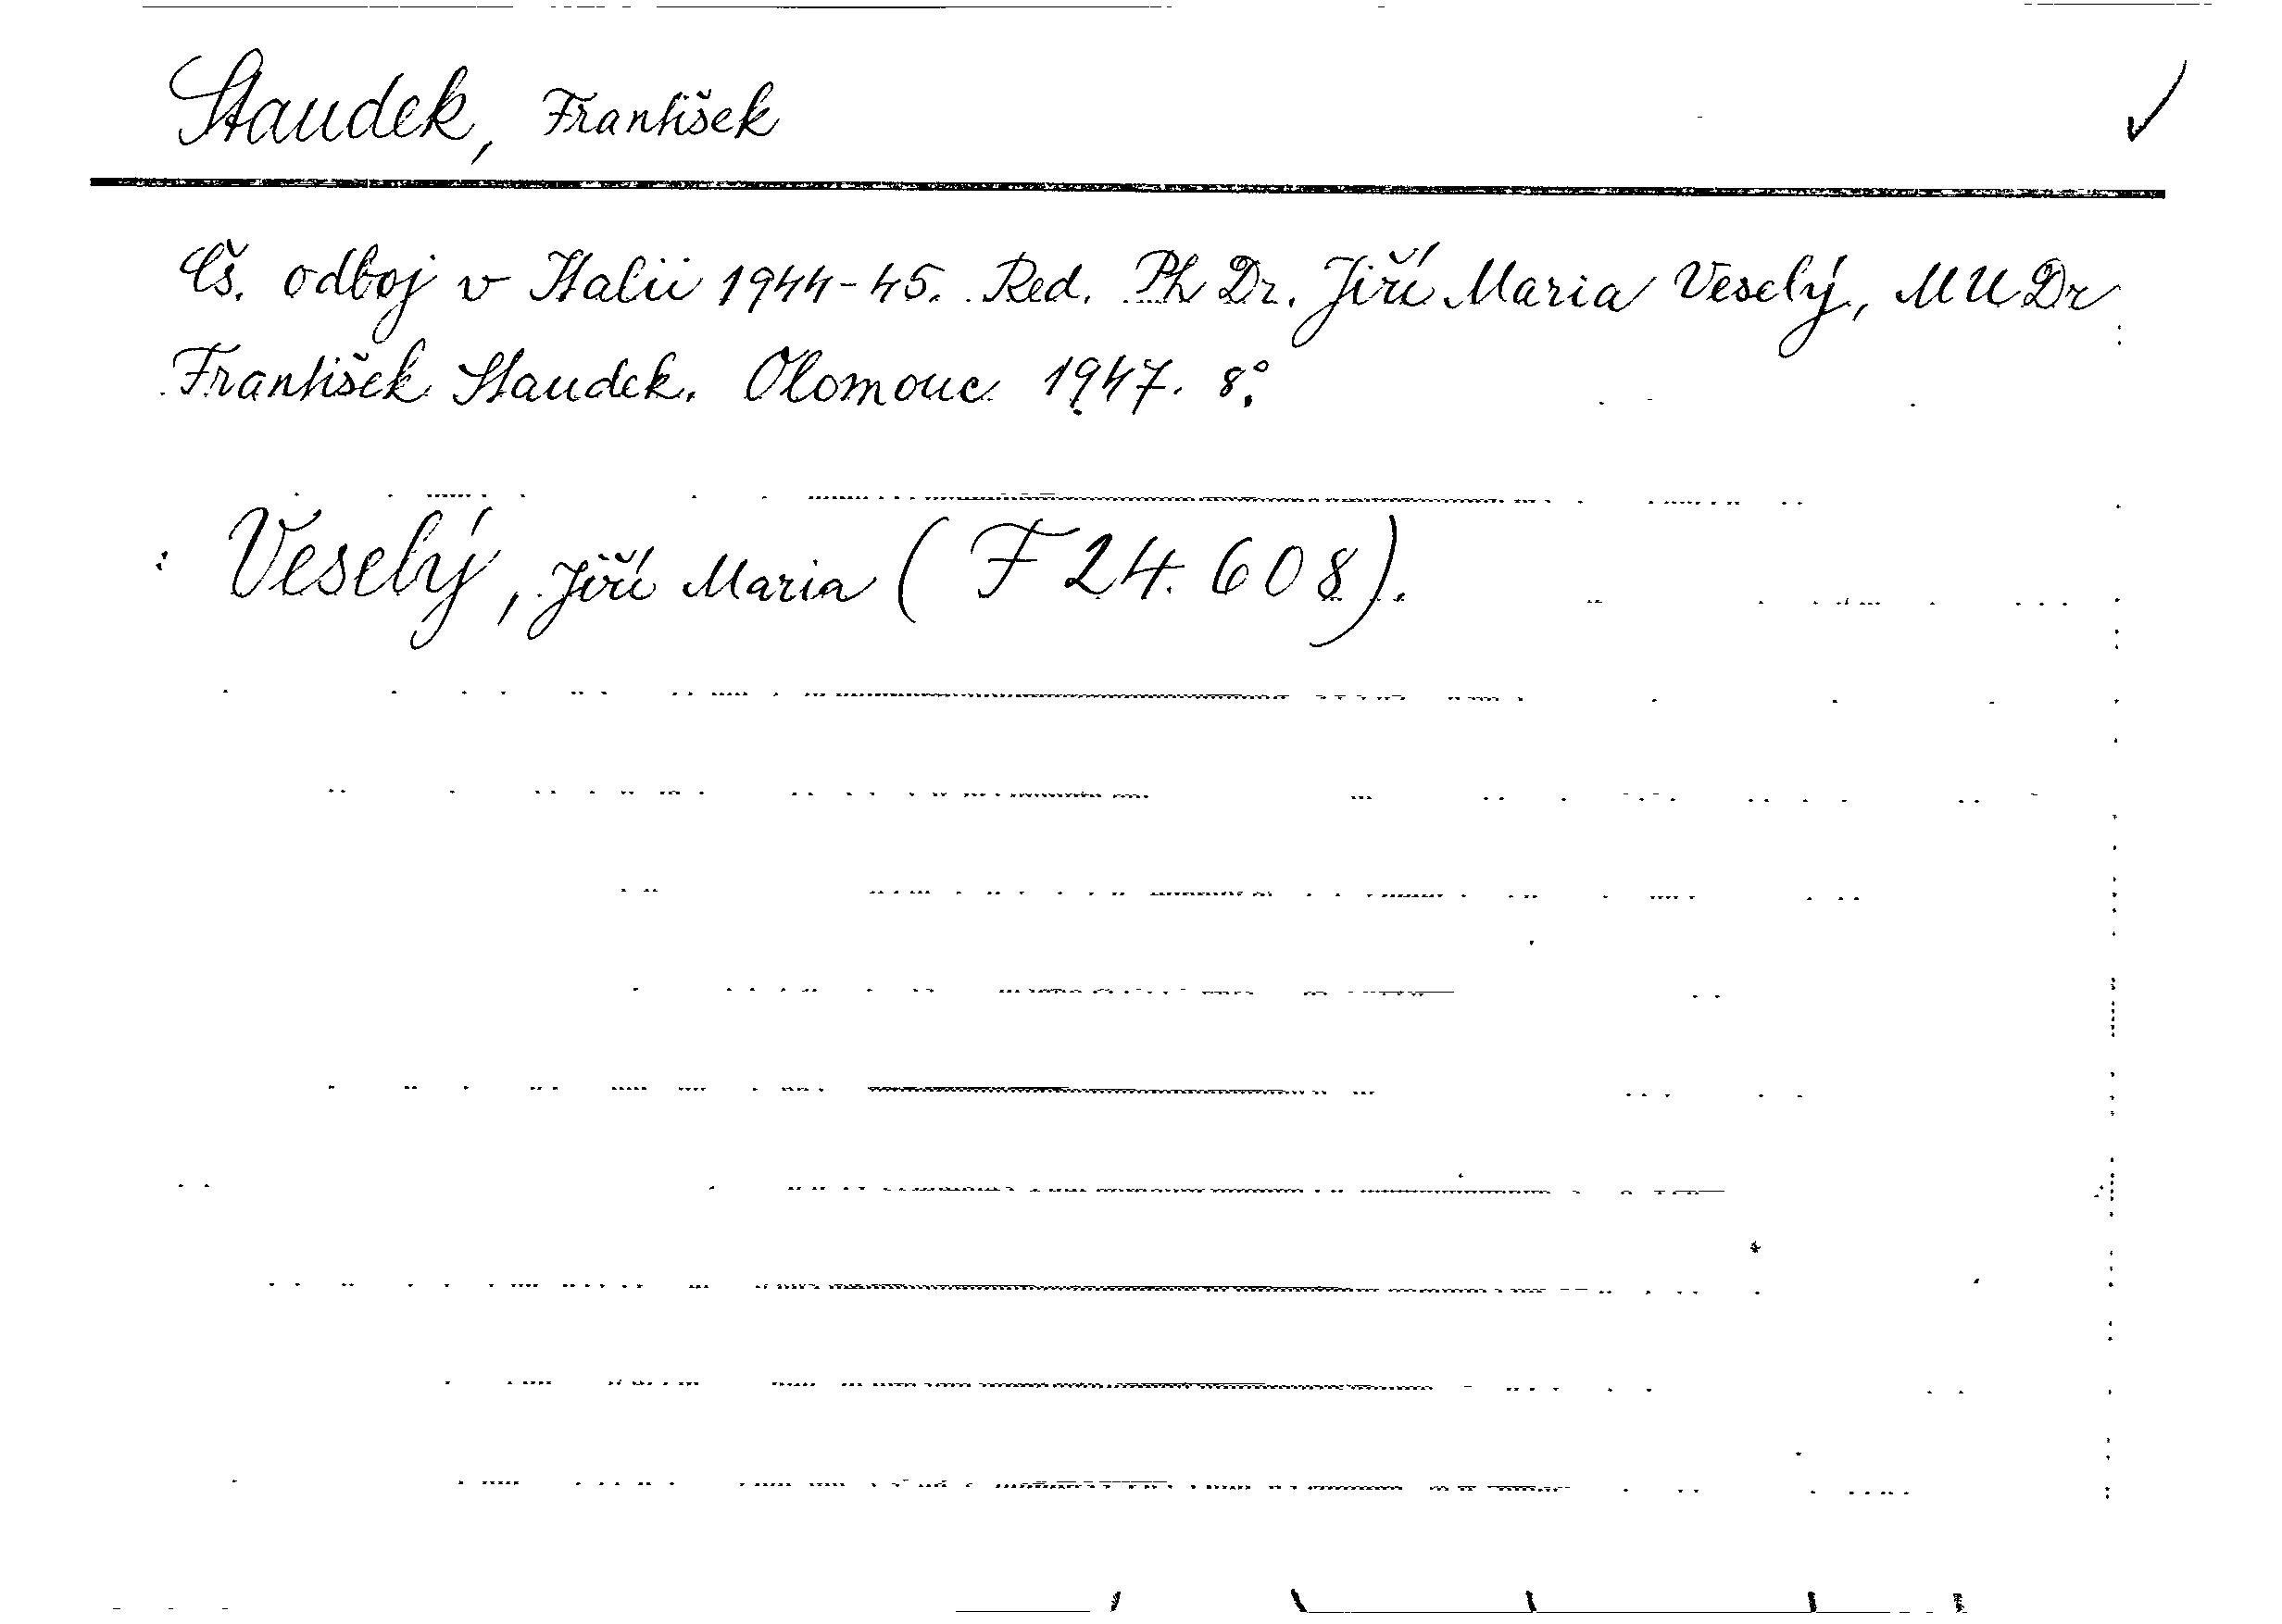 Staudek, František
Čs. odboj v Italii 1944-45. Red. PhDr. Jiří Maria Veselý, MUDr
František Staudek. Olomouc 1947. 8°.
Veselý, Jiří Maria (F 24.608).